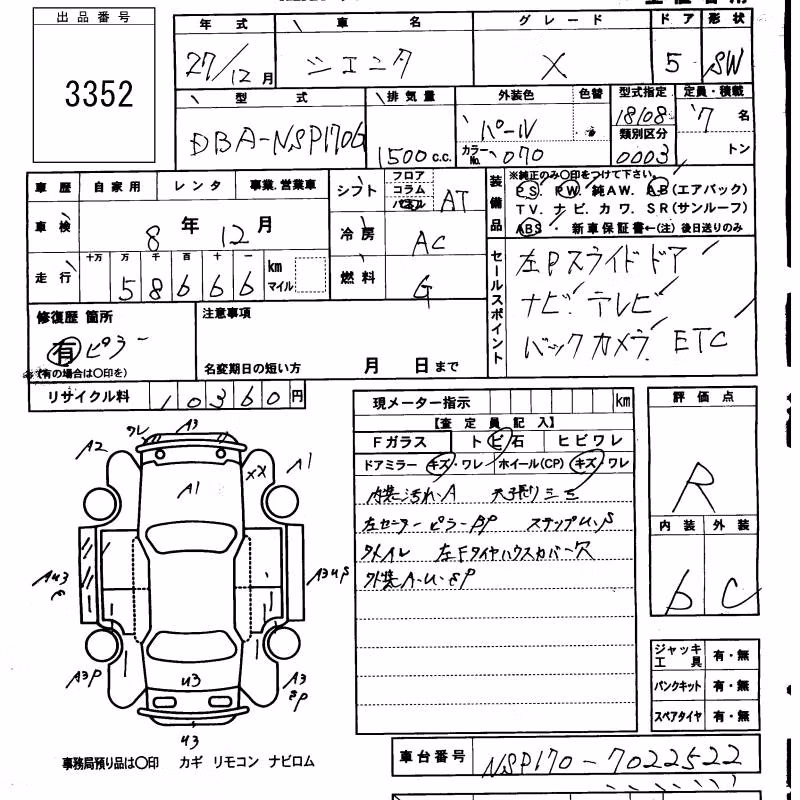 出品番号
3352
年式 車名 グレード ドア 形状
27/12月 シエンタ X 5 SW
型式 排気量 外装色 色替 型式指定 定員・積載
DBA-NSP170G 1500c.c. パール 18108 7名
カラーNo. 070 類別区分 0003 トン
車歴 自家用 レンタ 事業.営業車
シフト フロア コラム パネル AT
車検 8年12月
冷房 AC
走行 十万 万 千 百 十 一
58666 km マイル
燃料 G
装備品
※純正のみ○印をつけて下さい。
PS. PW. 純AW. AB(エアバック)
TV. ナビ. カワ. SR(サンルーフ)
ABS ・ 新車保証書←(注)後日送りのみ
セールスポイント
左Pスライドドア
ナビ. テレビ
バックカメラ. ETC
修復歴 箇所
有 ピラー
(有の場合は○印を)
注意事項
名変期日の短い方 月 日まで
リサイクル料 10360円
現メーター指示 km
【査定員記入】
Fガラス トビ石 ヒビワレ
ドアミラー キズ・ワレ ホイール(CP) キズ・ワレ
内装汚れ.A
左センターピラーBP
左Fタイヤハウスカバー穴
外装A・U・
評価点
R
内装 外装
b C
ワレ A3
A2 A1
XX
A1
AU3
P
A3US
A3P
A3
U3
U3
ジャッキ工具 有・無
パンクキット 有・無
スペアタイヤ 有・無
事務局預り品は○印 カギ リモコン ナビロム
車台番号 NSP170-7022522